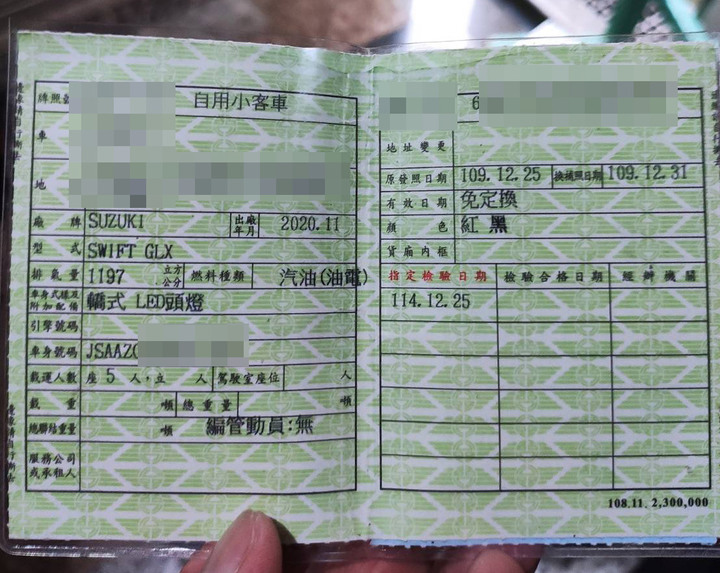 牌照號 自用小客車
車
地
廠牌 SUZUKI 出廠年月 2020.11
型式 SWIFT GLX
排氣量 1197 立方公分 燃料種類 汽油(油電)
車身式樣及附加配備 轎式 LED頭燈
引擎號碼
車身號碼 JSAAZC
載運人數 座 5 人,立 人 駕駛室座位 人
載重 噸 總重量 噸
總聯結重量 噸 編管動員:無
服務公司或承租人
6
地址變更
原發照日期 109.12.25 換補照日期 109.12.31
有效日期 免定換
顏色 紅 黑
貨廂內框
指定檢驗日期 檢驗合格日期 經辦機關
114.12.25
108.11. 2,300,000